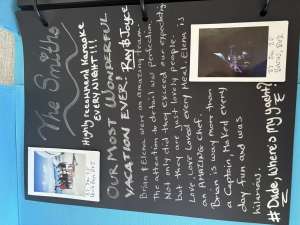 The Smiths
Highly recommend Karaoke
EVERY NIGHT!!!
OUR MOST WONDERFUL
VACATION EVER! Ray & Joyce
Brian & Elena were an amazing team.
The attention to detail was perfection.
Not only did they exceed our expectations
but they are just lovely people.
Love, Love Loved every meal. Elena is
an AMAZING chef.
Brian is way more than
a Captain, He made every
day fun and was
hilarious.
# Dude, Where's My Yacht?